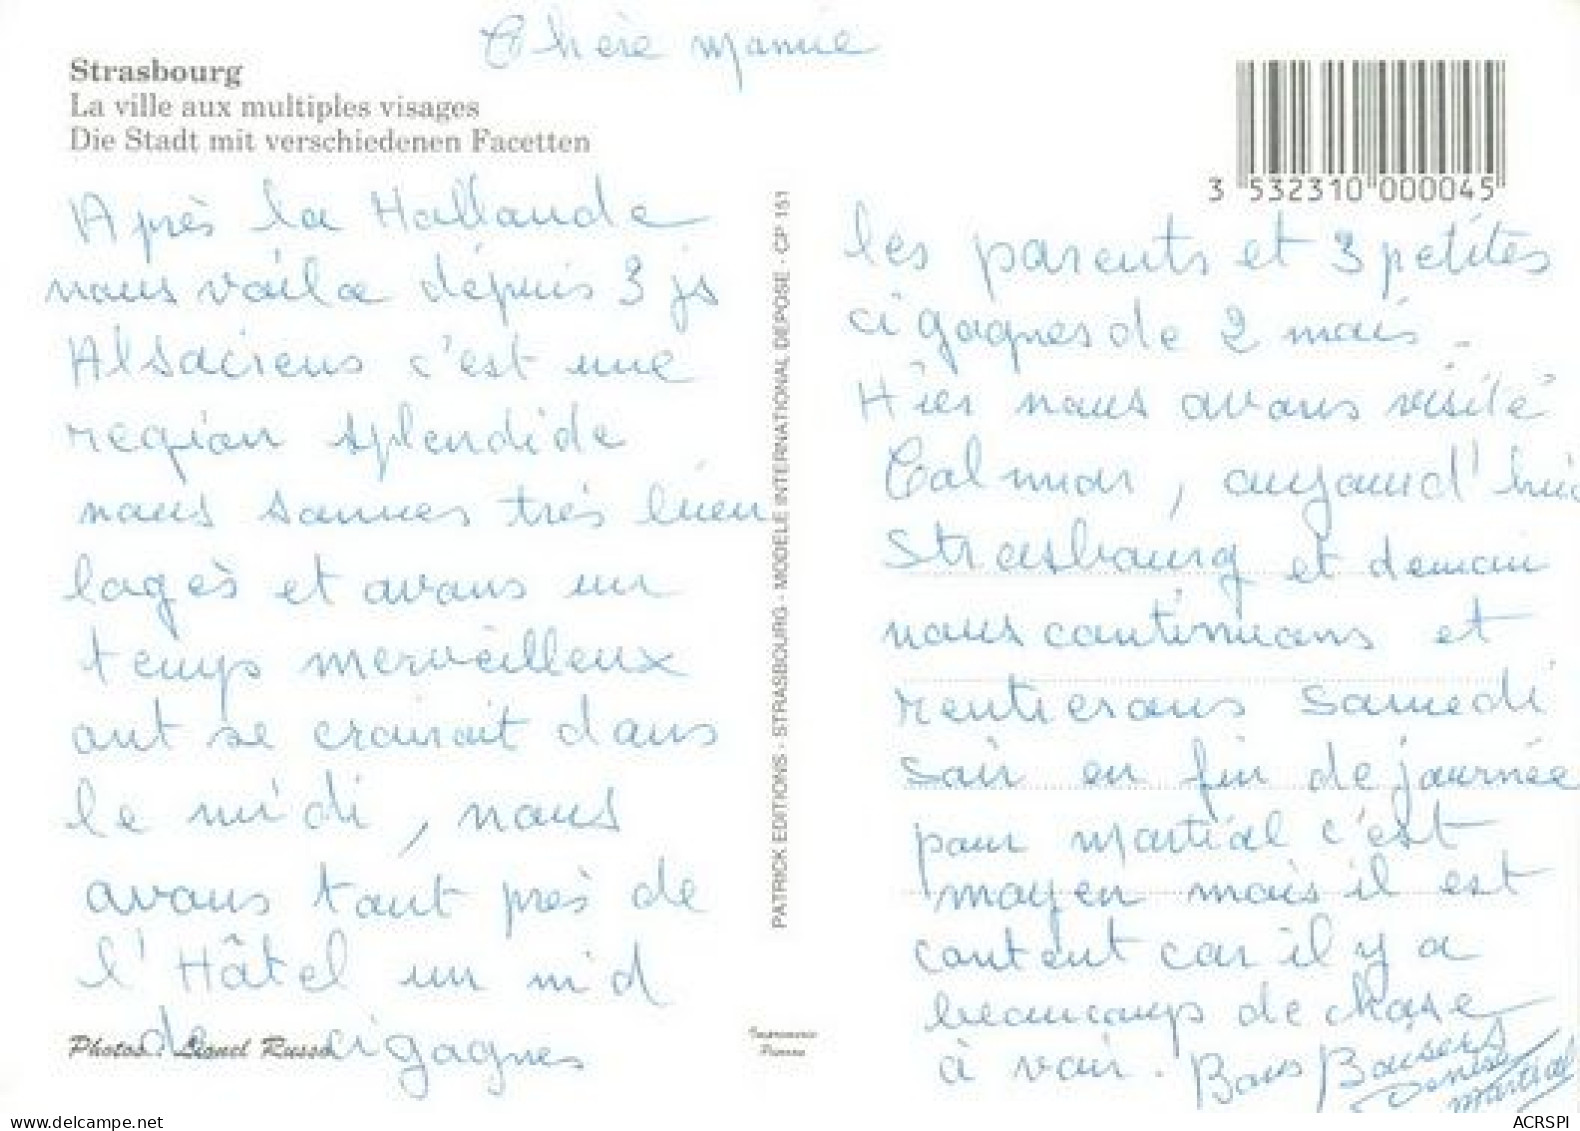 Chère Mamie
Strasbourg
La ville aux multiples visages
Die Stadt mit verschiedenen Facetten
3 532310 000045
Après la Hollande
nous voila dépuis 3 js
Alsaciens c'est une
region splendide
nous sommes très bien
logès et avons un
temps merveilleux
ont se croirait dans
le midi, nous
avons tout près de
l'Hôtel un nid
de cigognes
Photos : Lionel Russo
PATRICK EDITIONS - STRASBOURG - MODELE INTERNATIONAL DEPOSE - CP 151
Imprimerie
les parents et 3 petites
cigognes de 2 mois.
Hier nous avons visité
Colmar, aujourd'hui
Strasbourg et demain
nous continuons et
rentrerons samedi
soir en fin de journée
pour Martial c'est
moyen mais il est
content car il y a
beaucoups de chose
à voir. Bons Baisers
Denise
Martial
ACRSPI
delcampe.net